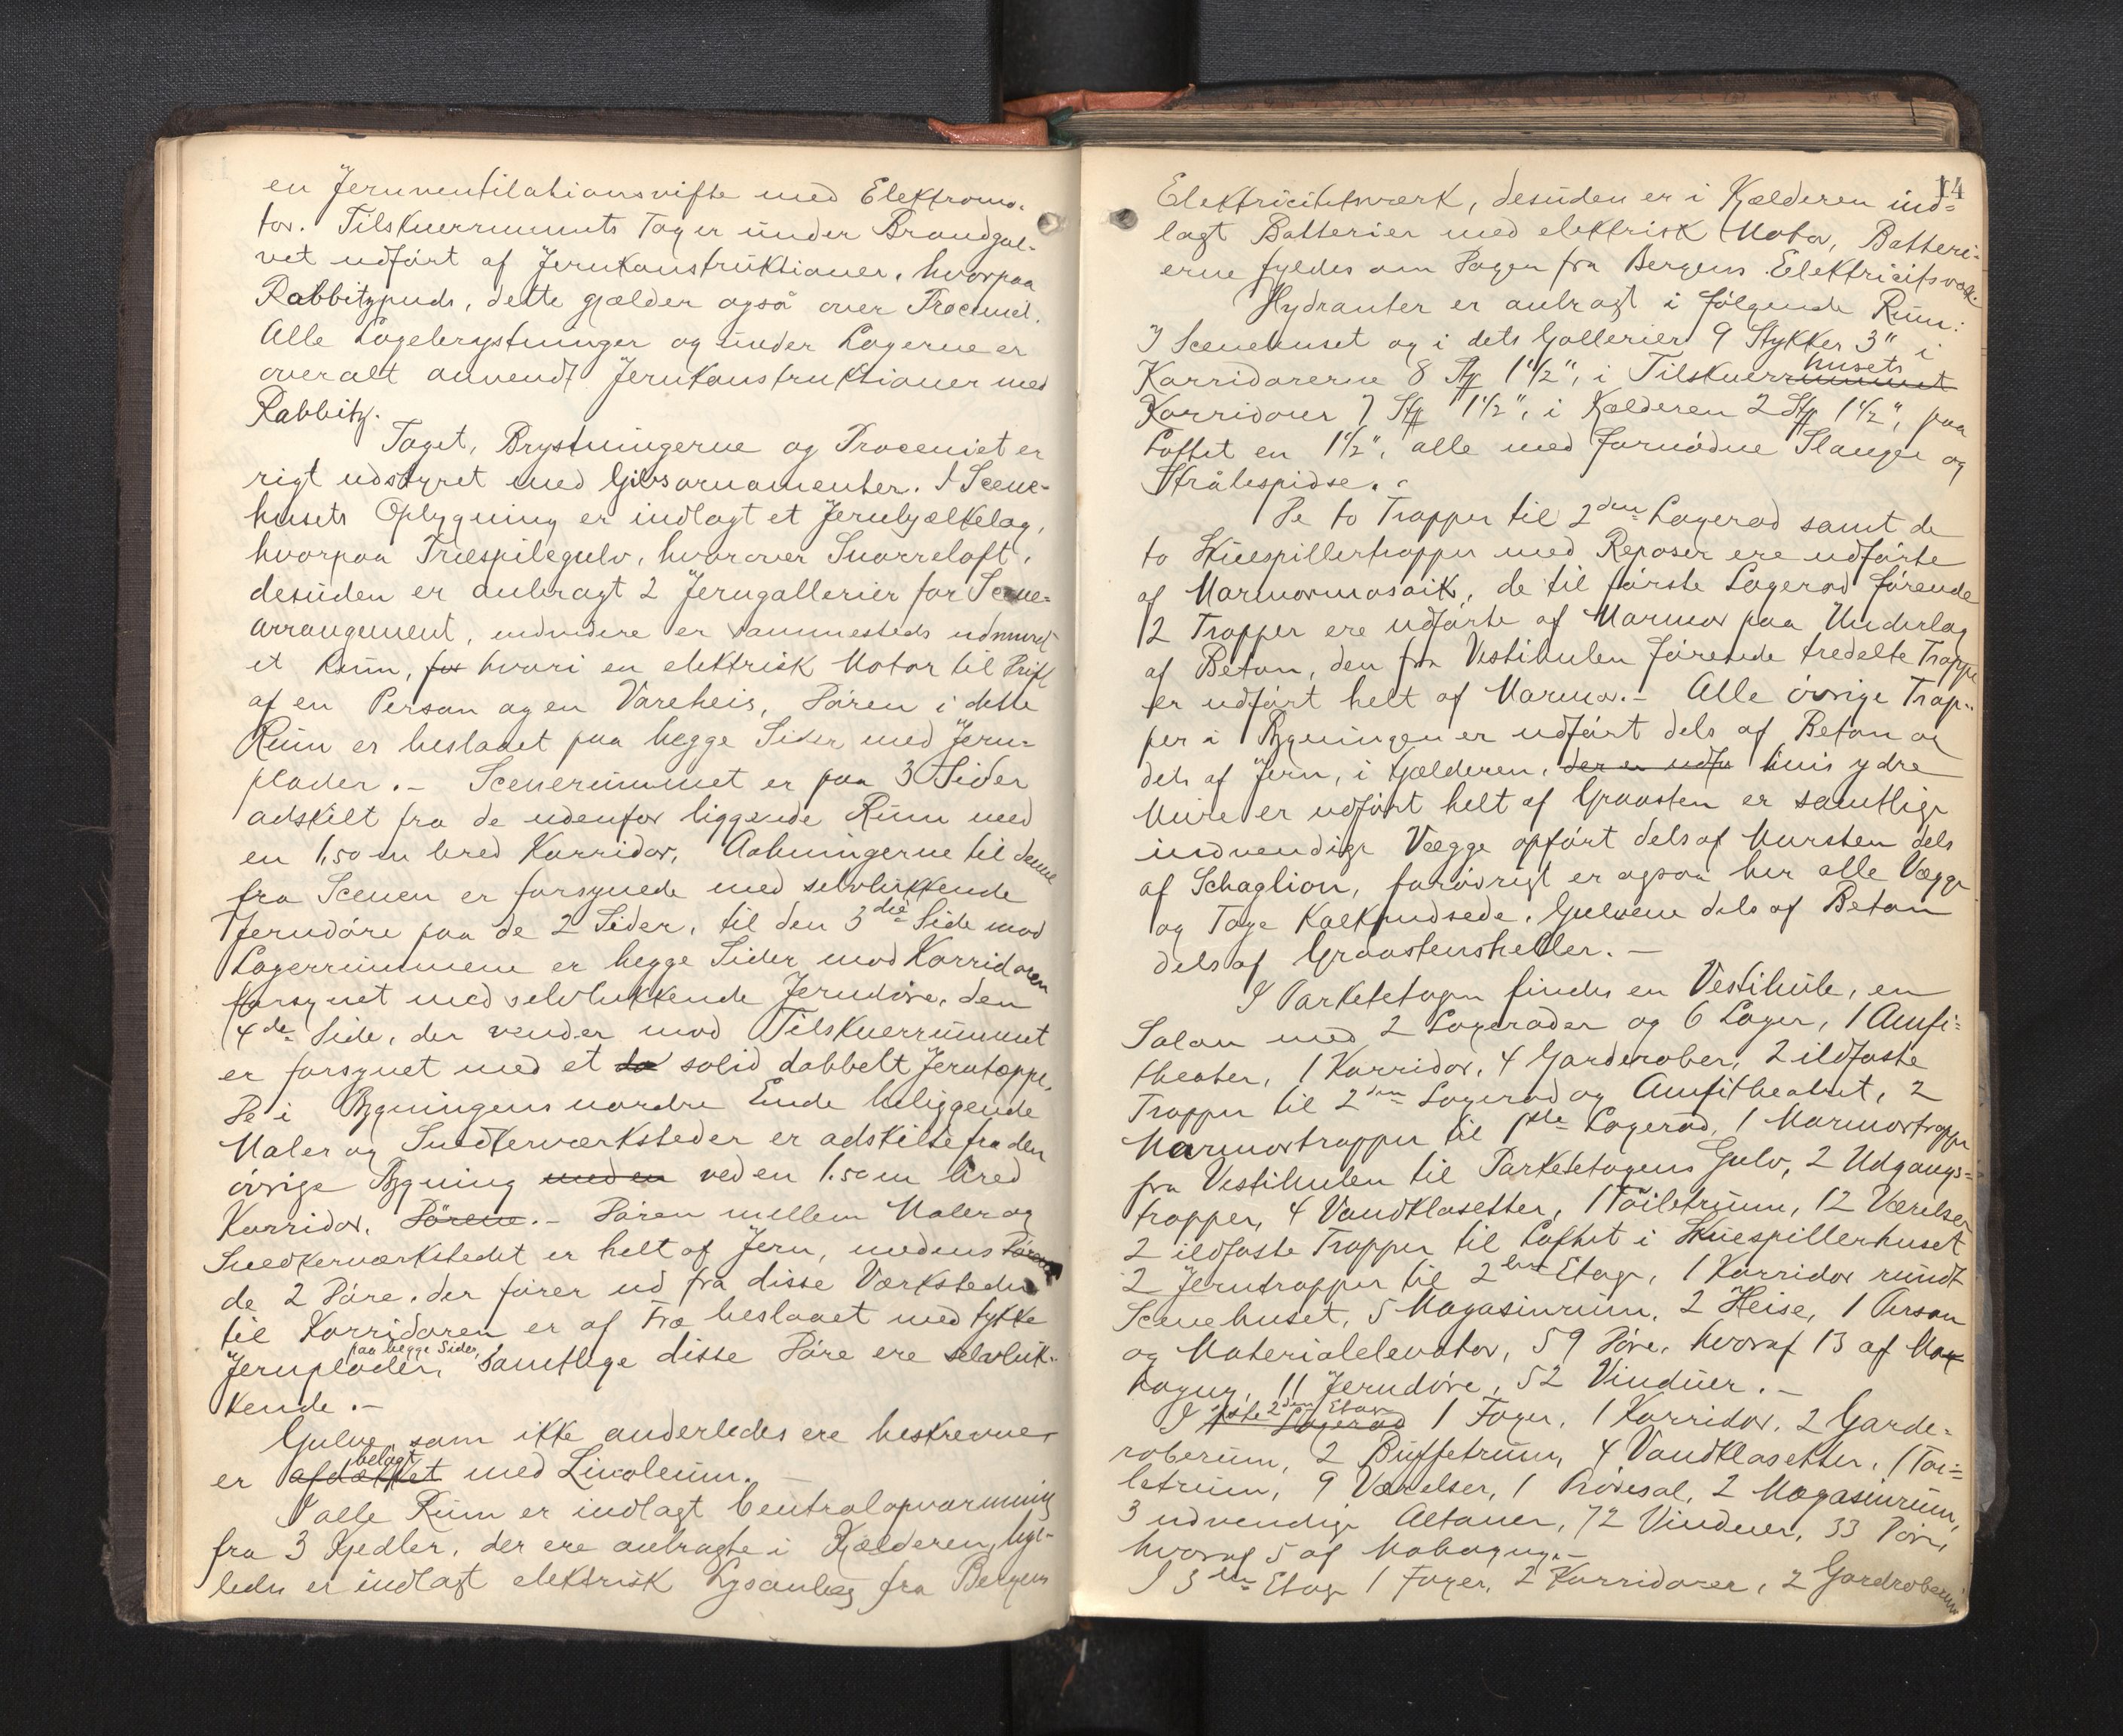 en Jernventilationsvifte med Elektromo-
tor. Tilskuerrummets Tag er under Brandgul-
vet udført af Jernkonstruktioner, hvorpaa
Rabbitzpuds, dette gjælder også over Proceniet.
Alle Logebrystninger og under Logerne er
overalt anvendt Jernkonstruktioner med
Rabbitz.
Taget, Brystningerne og Proceniet er
rigt udstyret med Gibsornamenter. I Scene-
husets Opbygning er indlagt et Jernbjælkelag,
hvorpaa Træspilegulv, hvorover Snorreloft,
desuden er anbragt 2 Jerngallerier for Scene-
arrangement, endvidere er sammesteds udmuret
et Rum, for hvori en elektrisk Motor til Drift
af en Person og en Vareheis, Døren i dette
Rum er beslaaet paa begge Sider med Jern-
plader. - Scenerummet er paa 3 Sider
adskilt fra de udenfor liggende Rum med
en 1,50 m bred Korridor, Aabningerne til denne
fra Scenen er forsynede med selvlukkende
Jerndøre paa de 2 Sider, til den 3die Side mod
Logerrummene er begge Sider mod Korridoren
forsynet med selvlukkende Jerndøre, den
4de Side, der vender mod Tilskuerrummet
er forsynet med et solid dobbelt Jerntæppe,
De i Bygningens nordre Ende beliggende
Maler og Snedkerværksteder er adskilte fra den
øvrige Bygning med en ved en 1.50 m bred
Korridor, Dørene. - Døren mellem Maler og
Snedkerværkstedet er helt af Jern, medens Dørene
de 2 Døre, der fører ud fra disse Værksteder
til Korridoren er af Træ beslaaet med tykke
paa begge Sider,
Jernplader, samtlige disse Døre ere selvluk-
kende. -
Gulve, som ikke anderledes ere beskrevne
belagt
er afdækket med Linoleum. -
I alle Rum er indlagt Centralopvarmning
fra 3 Kjedler, der ere anbragte i Kjælderen, lige-
ledes er indlagt elektrisk Lysanlæg fra Bergens
14
Elektricitetsværk, desuden er i Kjælderen ind-
lagt Batterier med elektrisk Motor, Batteri-
erne fyldes om Dagen fra Bergens Elektricitsværk.
Hydranter er anbragt i følgende Rum:
I Scenehuset og i dets Gallerier 9 Stykker 3" i
husets
Korridorerne 8 Stk 1 1/2", i Tilskuerrummet
Korridorer 7 Stk 1 1/2", i Kjælderen 2 Stk 1 1/2", paa
Loftet en 1 1/2", alle med fornødne Slanger og
Strålespidse.
De to Trapper til 2den Logerad samt de
to Skuespillertrapper med Reposer ere udførte
af Marmormosaik, de til første Logerad førende
2 Trapper ere udførte af Marmor paa Underlag
af Beton, den fra Vestibulen førende tredelte Trappe
er udført helt af Marmor. - Alle øvrige Trap-
per i Bygningen er udført dels af Beton og
dels af Jern, i Kjælderen, der er udfø hvis ydre
Mure er udført helt af Graasten er samtlige
indvendige Vægge opført dels af Mursten dels
af Schaglion, forøvrigt er ogsaa her alle Vægge
og Tage Kalkpudsede. Gulvene dels af Beton
dels af Graastensheller. -
I Parketetagen findes en Vestibule, en
Salon med 2 Logerader og 6 Loger, 1 Amfi-
theater, 1 Korridor, 4 Garderober, 2 ildfaste
Trapper til 2den Logerad og Amfitheatret, 2
Marmortrapper til 1ste Logerad, 1 Marmortrappe
fra Vestibulen til Parketetagens Gulv, 2 Udgangs-
trapper, 4 Vandklosetter, 1 Toiletrum, 12 Værelser
2 ildfaste Trapper til Loftet i Skuespillerhuset
2 Jerntrapper til 2den Etage, 1 Korridor rundt
Scenehuset, 5 Magasinrum, 2 Heise, 1 Person
og Materialelevator, 59 Døre, hvoraf 13 af Ma-
hogny, 11 Jerndøre, 52 Vinduer. -
2den Etage
I 1ste Logerad 1 Foyer, 1 Korridor, 2 Garde-
roberum, 2 Buffetrum, 4 Vandklosetter, 1 Toi-
letrum, 9 Værelser, 1 Prøvesal, 2 Magasinrum,
3 udvendige Altaner, 72 Vinduer, 33 Døre,
hvoraf 5 af Mahogny. -
I 3die Etage 1 Foyer, 2 Korridorer, 2 Gardroberum